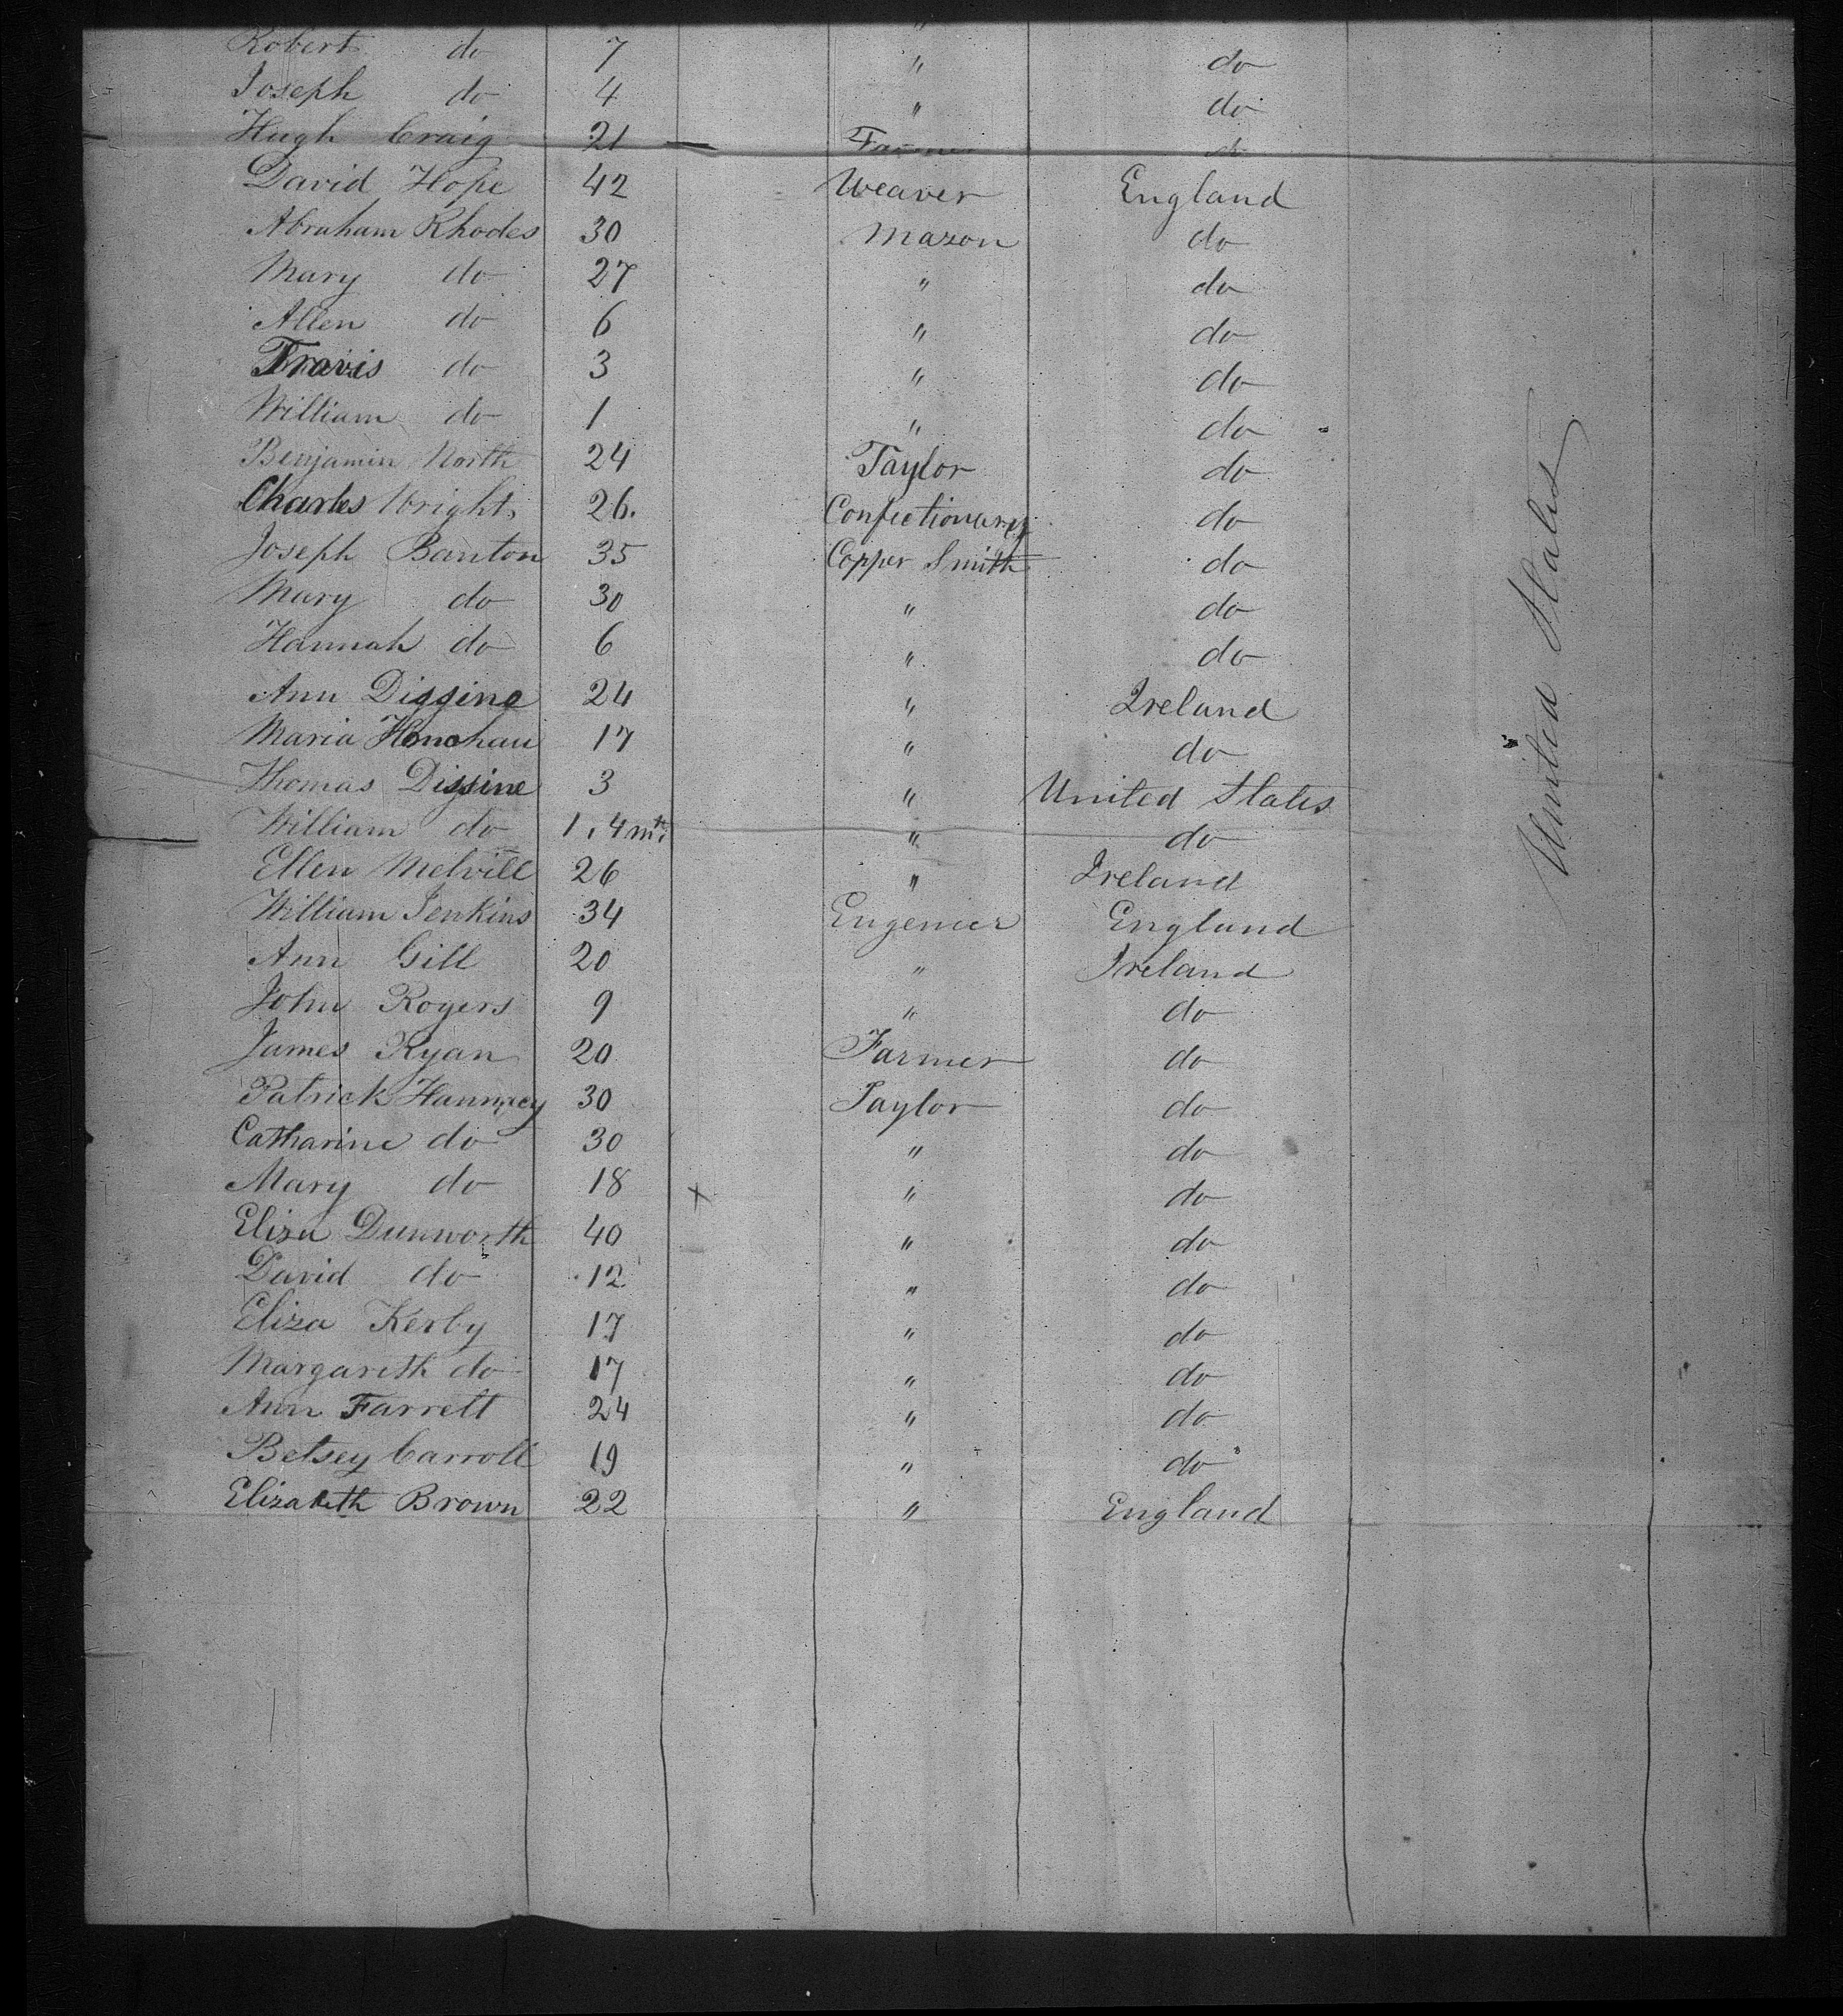 "
Robert do 7 " do
Joseph do 4 " do
Hugh Craig 21 Farmer do
David Hope 42 Weaver England
Abraham Rhodes 30 Mazon do
Mary do 27 " do
Allen do 6 " do
Travis do 3 " do
William do 1 " do
Benjamin North 24 Taylor do
Charles Wright 26. Confectionary do
Joseph Banton 35 Copper Smith do
Mary do 30 " do
Hannah do 6 " do
Ann Diggine 24 " Ireland
Maria 17 " do
Thomas Diggine 3 " United States
William do 1,4 mth " do
Ellen Melvill 26 " Ireland
William Jenkins 34 Engenier England
Ann Gill 20 " Ireland
John Rogers 9 " do
James Ryan 20 Farmer do
Patrick 30 Taylor do
Catharine do 30 " do
Mary do 18 x " do
Eliza Dunworth 40 " do
David do 12 " do
Eliza Kerby 17 " do
Margareth do 17 " do
Ann Farrell 24 " do
Betsey Carroll 19 " do
Elizabeth Brown 22 " England
United States